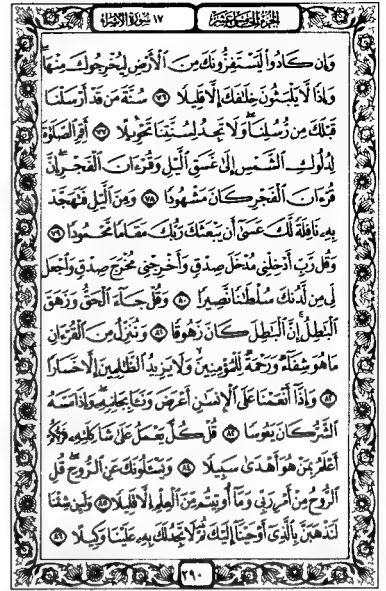 ١٧ سورة الإسراء الجزء الخامس عشر
وَإِن كَادُوا۟ لَيَسْتَفِزُّونَكَ مِنَ ٱلْأَرْضِ لِيُخْرِجُوكَ مِنْهَا ۖ
وَإِذًا لَّا يَلْبَثُونَ خِلَٰفَكَ إِلَّا قَلِيلًا ٧٦ سُنَّةَ مَن قَدْ أَرْسَلْنَا
قَبْلَكَ مِن رُّسُلِنَا ۖ وَلَا تَجِدُ لِسُنَّتِنَا تَحْوِيلًا ٧٧ أَقِمِ ٱلصَّلَوٰةَ
لِدُلُوكِ ٱلشَّمْسِ إِلَىٰ غَسَقِ ٱلَّيْلِ وَقُرْءَانَ ٱلْفَجْرِ ۖ إِنَّ
قُرْءَانَ ٱلْفَجْرِ كَانَ مَشْهُودًا ٧٨ وَمِنَ ٱلَّيْلِ فَتَهَجَّدْ
بِهِۦ نَافِلَةً لَّكَ عَسَىٰٓ أَن يَبْعَثَكَ رَبُّكَ مَقَامًا مَّحْمُودًا ٧٩
وَقُل رَّبِّ أَدْخِلْنِى مُدْخَلَ صِدْقٍ وَأَخْرِجْنِى مُخْرَجَ صِدْقٍ وَٱجْعَل
لِّى مِن لَّدُنكَ سُلْطَٰنًا نَّصِيرًا ٨٠ وَقُلْ جَآءَ ٱلْحَقُّ وَزَهَقَ
ٱلْبَٰطِلُ ۚ إِنَّ ٱلْبَٰطِلَ كَانَ زَهُوقًا ٨١ وَنُنَزِّلُ مِنَ ٱلْقُرْءَانِ
مَا هُوَ شِفَآءٌ وَرَحْمَةٌ لِّلْمُؤْمِنِينَ ۙ وَلَا يَزِيدُ ٱلظَّٰلِمِينَ إِلَّا خَسَارًا
٨٢ وَإِذَآ أَنْعَمْنَا عَلَى ٱلْإِنسَٰنِ أَعْرَضَ وَنَـَٔا بِجَانِبِهِۦ ۖ وَإِذَا مَسَّهُ
ٱلشَّرُّ كَانَ يَـُٔوسًا ٨٣ قُلْ كُلٌّ يَعْمَلُ عَلَىٰ شَاكِلَتِهِۦ فَرَبُّكُمْ
أَعْلَمُ بِمَنْ هُوَ أَهْدَىٰ سَبِيلًا ٨٤ وَيَسْـَٔلُونَكَ عَنِ ٱلرُّوحِ ۖ قُلِ
ٱلرُّوحُ مِنْ أَمْرِ رَبِّى وَمَآ أُوتِيتُم مِّنَ ٱلْعِلْمِ إِلَّا قَلِيلًا ٨٥ وَلَئِن شِئْنَا
لَنَذْهَبَنَّ بِٱلَّذِىٓ أَوْحَيْنَآ إِلَيْكَ ثُمَّ لَا تَجِدُ لَكَ بِهِۦ عَلَيْنَا وَكِيلًا ٨٦
٢٩٠